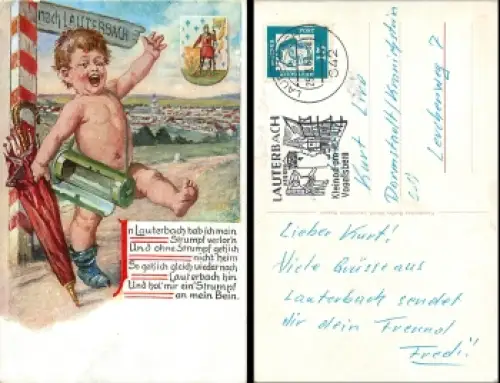 nach LAUTERBACH
In Lauterbach hab ich mein
Strumpf verlor'n
Und ohne Strumpf geh ich
nicht heim
So geh ich gleich wieder nach
Lauterbach hin
Und hol' mir ein' Strumpf
an mein Bein.
DEUTSCHE
POST
642
LAUTERBACH
Kleinod am
Vogelsberg
Kurt
Darmstadt/Kranichstein
Lerchenweg 7
Lieber Kurt!
Viele Grüsse aus
Lauterbach sendet
dir dein Freund
Fredi!